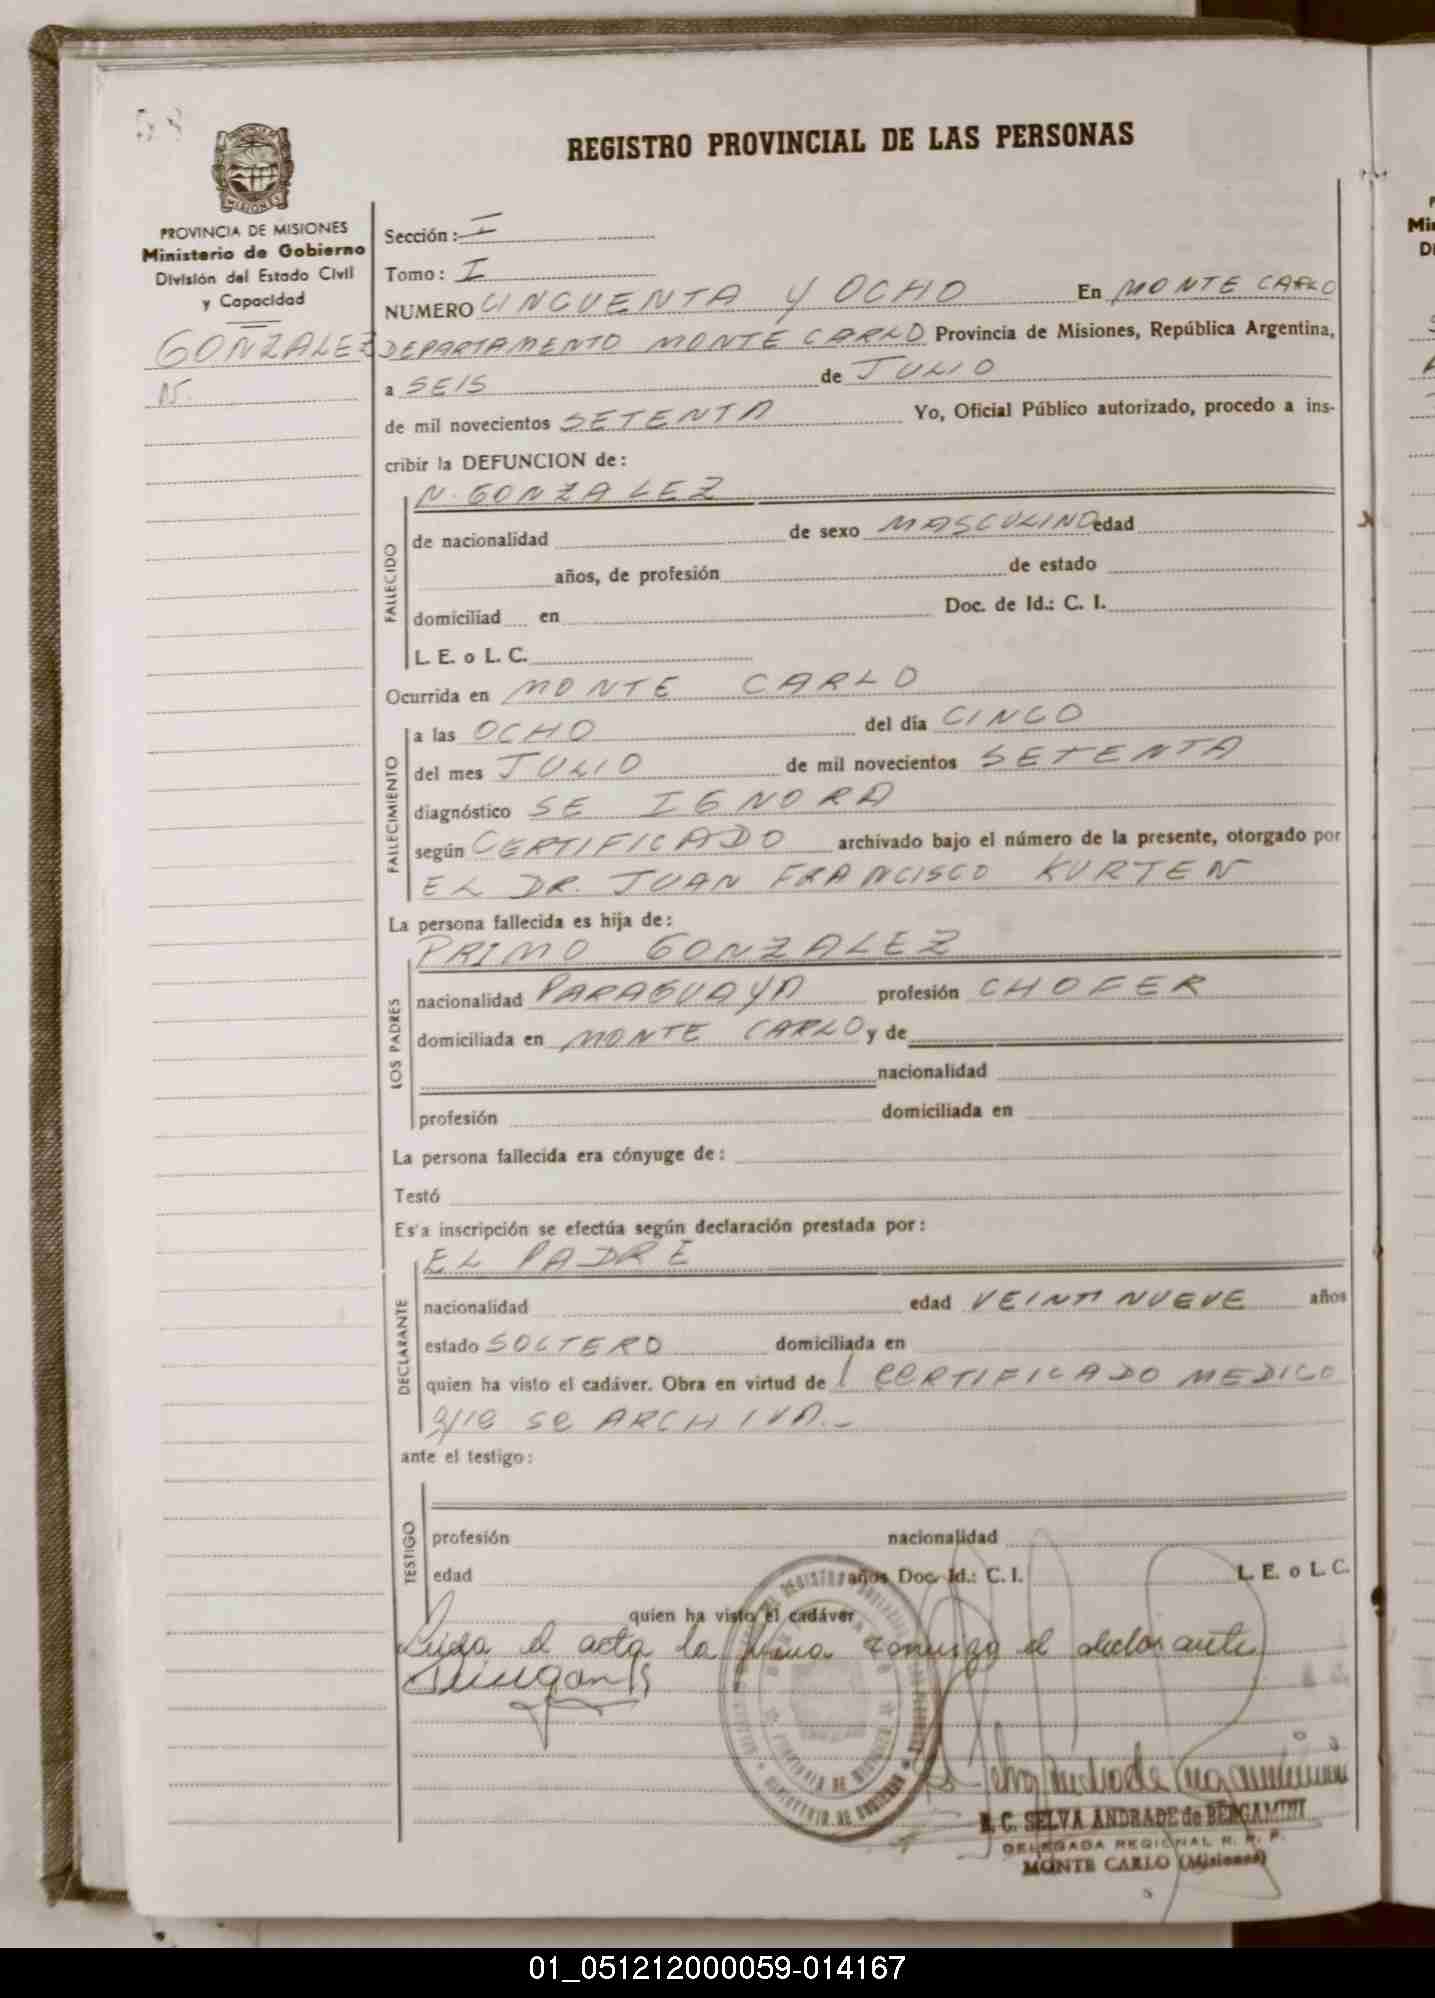 58
REGISTRO PROVINCIAL DE LAS PERSONAS
MISIONES
PROVINCIA DE MISIONES
Ministerio de Gobierno
División del Estado Civil
y Capacidad
GONZALEZ
N.
Sección: I
Tomo: I
NUMERO CINCUENTA Y OCHO En MONTE CARLO
DEPARTAMENTO MONTE CARLO Provincia de Misiones, República Argentina,
a SEIS de JULIO
de mil novecientos SETENTA Yo, Oficial Público autorizado, procedo a ins-
cribir la DEFUNCION de:
FALLECIDO
N. GONZALEZ
de nacionalidad de sexo MASCULINO edad
años, de profesión de estado
domiciliad en Doc. de Id.: C. I.
L. E. o L. C.
Ocurrida en MONTE CARLO
FALLECIMIENTO
a las OCHO del día CINCO
del mes JULIO de mil novecientos SETENTA
diagnóstico SE IGNORA
según CERTIFICADO archivado bajo el número de la presente, otorgado por
EL DR. JUAN FRANCISCO KURTEN
La persona fallecida es hija de:
LOS PADRES
PRIMO GONZALEZ
nacionalidad PARAGUAYA profesión CHOFER
domiciliada en MONTE CARLO y de
nacionalidad
profesión domiciliada en
La persona fallecida era cónyuge de:
Testó
Es'a inscripción se efectúa según declaración prestada por:
DECLARANTE
EL PADRE
nacionalidad edad VEINTINUEVE años
estado SOLTERO domiciliada en
quien ha visto el cadáver. Obra en virtud de l CERTIFICADO MEDICO
que se ARCHIVA.-
ante el testigo:
TESTIGO
profesión nacionalidad
edad años Doc. Id.: C. I. L. E. o L. C.
quien ha visto el cadáver
el acta la firma conmigo el declarante
E. C. SELVA ANDRADE de BERGAMINI
DELEGADA REGIONAL R. P. P.
MONTE CARLO (Misiones)
01_051212000059-014167